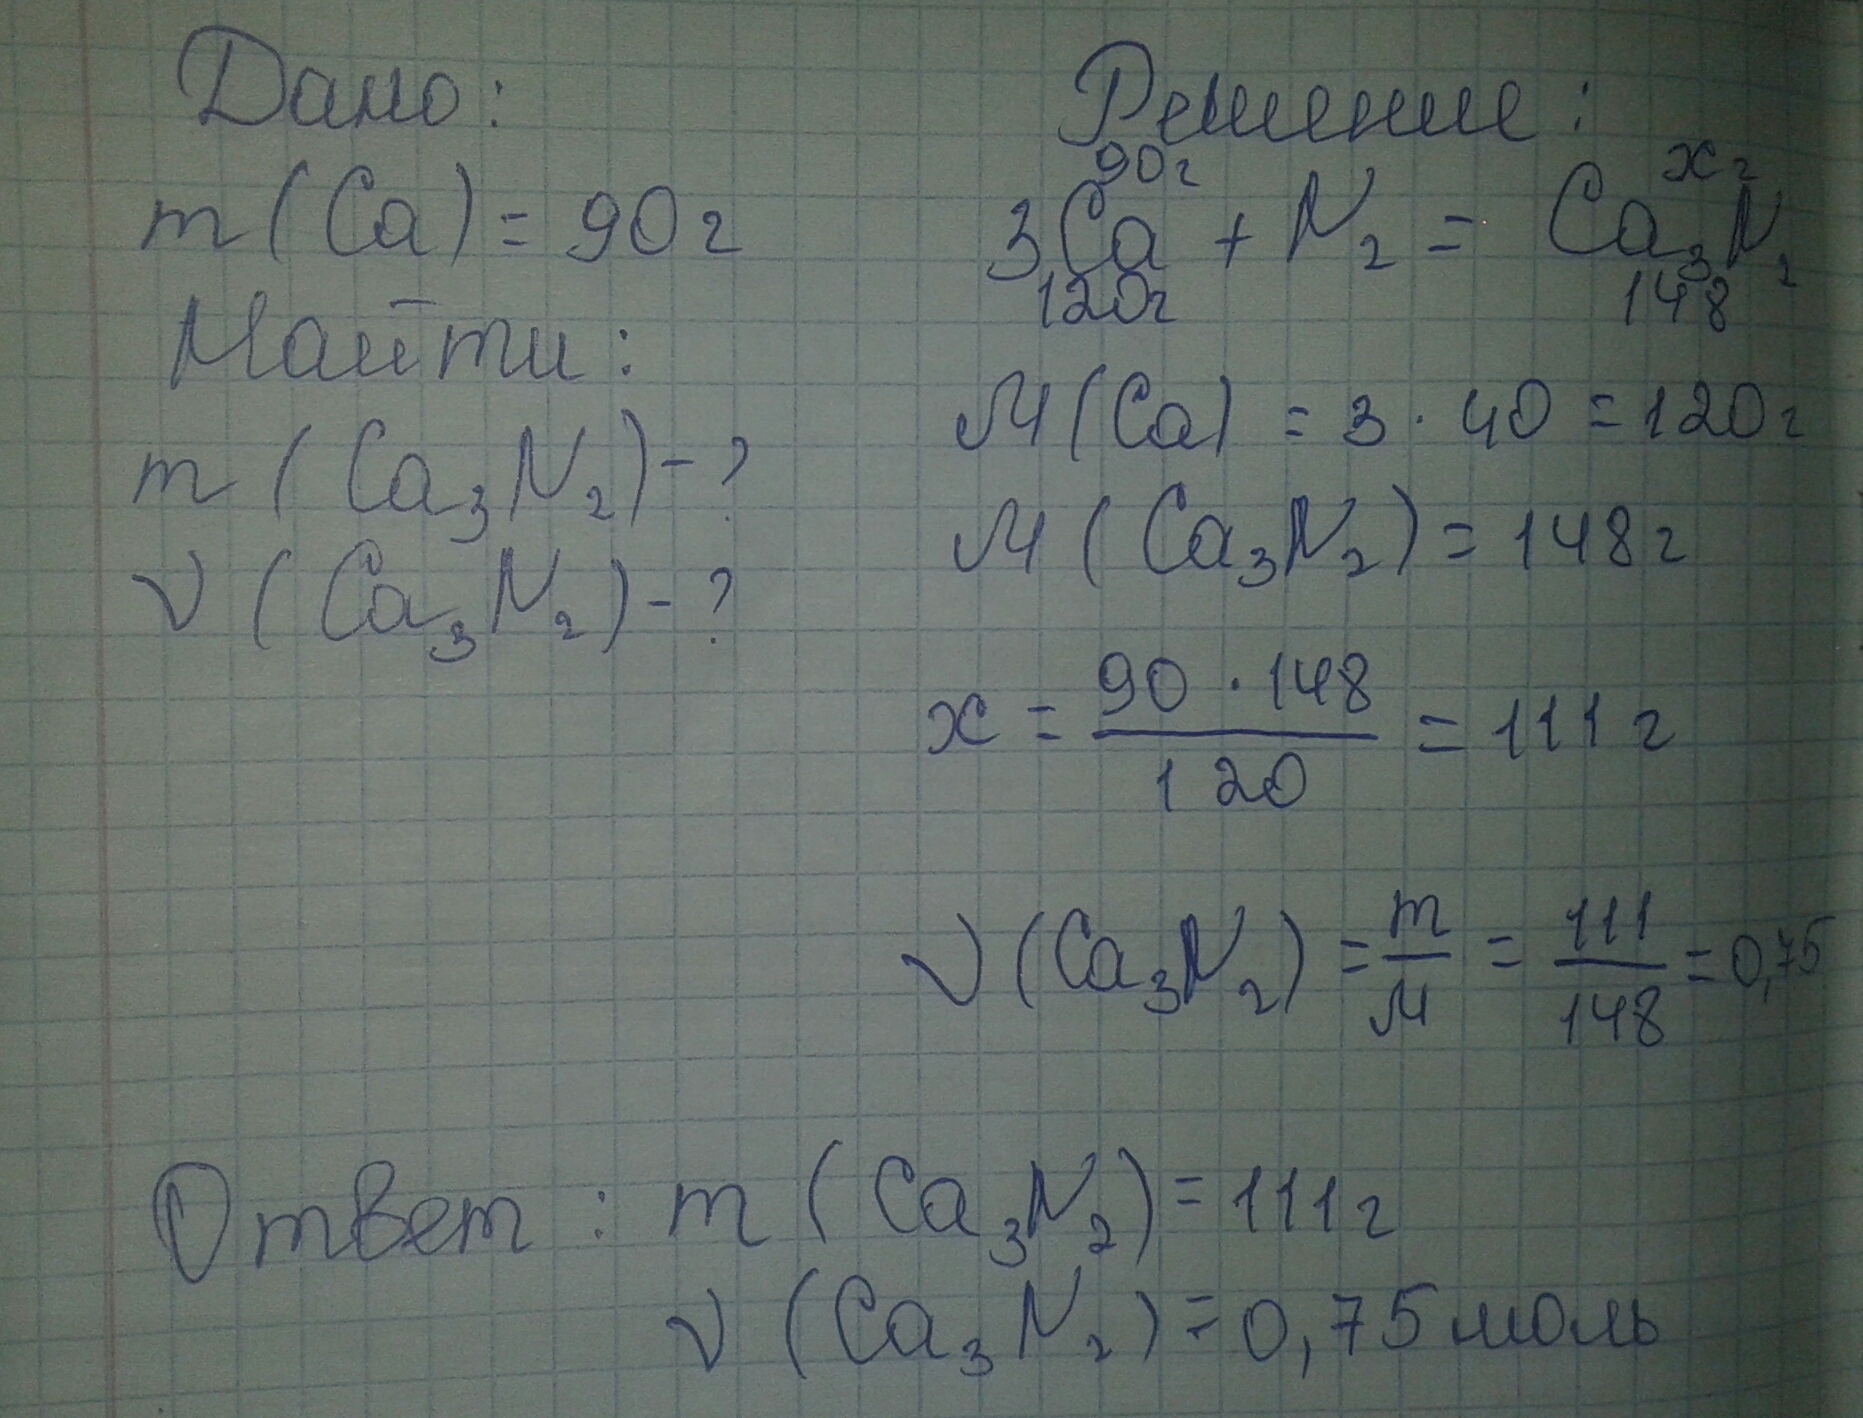 Дано:
m (Ca) = 90г
Найти:
m (Ca₃N₂) - ?
ν (Ca₃N₂) - ?
Решение:
90г xг
3Ca + N₂ = Ca₃N₂
120г 148
M (Ca) = 3 · 40 = 120г
M (Ca₃N₂) = 148г
x = 90 · 148 / 120 = 111г
ν (Ca₃N₂) = m / M = 111 / 148 = 0,75
Ответ: m (Ca₃N₂) = 111г
ν (Ca₃N₂) = 0,75 моль